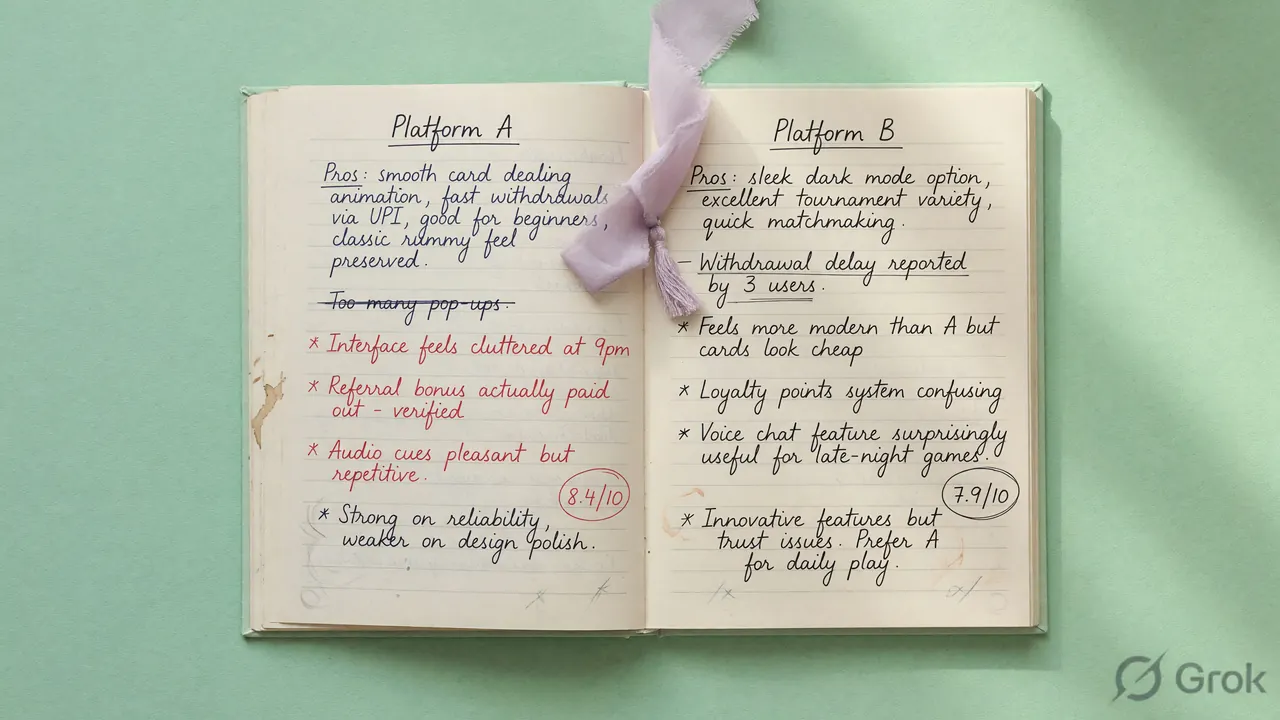 Platform A
Pros: smooth card dealing
animation, fast withdrawals
via UPI, good for beginners,
classic rummy feel
preserved.
Too many pop-ups.
* Interface feels cluttered at 9pm
* Referral bonus actually paid
out - verified
* Audio cues pleasant but
repetitive.
8.4/10
* Strong on reliability,
weaker on design polish.
Platform B
Pros: sleek dark mode option,
excellent tournament variety,
quick matchmaking.
- Withdrawal delay reported
by 3 users.
* Feels more modern than A but
cards look cheap
* Loyalty points system confusing
* Voice chat feature surprisingly
useful for late-night games.
7.9/10
* Innovative features but
trust issues. Prefer A
for daily play.
Grok